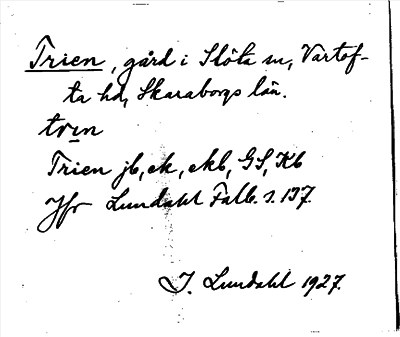 Trien, gård i Slöta sn, Vartof-
ta hd, Skaraborgs län.
Trien jb, ek, ekb, GS, Kb
Jfr Lundahl Falb. s. 137.
I. Lundahl 1927.